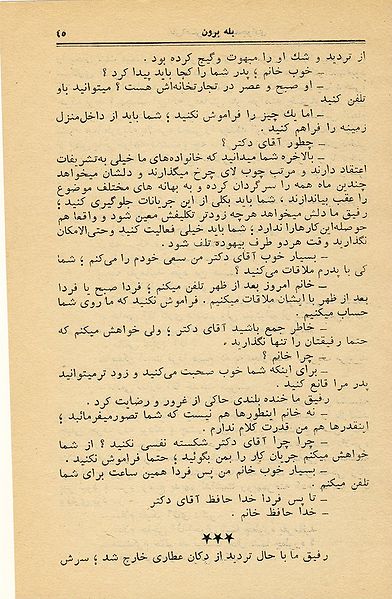 بله برون
۴۵
از تردید و شك او را مبهوت وگیج کرده بود .
ـ خوب خانم ؛ پدر شما را کجا باید پیدا کرد ؟
ـ او صبح و عصر در تجارتخانه‌اش هست ؟ میتوانید باو
تلفن کنید
ـ اما یك چیز را فراموش نکنید ؛ شما باید از داخل‌منزل
زمینه را فراهم کنید .
ـ چطور آقای دکتر ؟
ـ بالاخره شما میدانید که خانواده‌های ما خیلی به‌تشریفات
اعتقاد دارند و مرتب چوب لای چرخ میگذارند و دلشان میخواهد
چندین ماه همه را سرگردان کرده و به بهانه های مختلف موضوع
را عقب بیاندازند ، شما باید یکی از این جریانات جلوگیری کنید ؛
رفیق ما دلش میخواهد هرچه زودتر تکلیفش معین شود و واقعا هم
حوصله‌این‌کارهارا ندارد ؛ شما باید خیلی فعالیت کنید وحتی‌الامکان
نگذارید وقت هردو طرف بیهوده تلف شود .
ـ بسیار خوب آقای دکتر من سعی خودم را می‌کنم ؛ شما
کی با پدرم ملاقات می‌کنید ؟
ـ خانم امروز بعد از ظهر تلفن میکنم ؛ فردا صبح یا فردا
بعد از ظهر با ایشان ملاقات میکنیم . فراموش نکنید که ما روی شما
حساب میکنیم .
ـ خاطر جمع باشید آقای دکتر ؛ ولی خواهش میکنم که
حتما رفیقتان را تنها نگذارید .
ـ چرا خانم ؟
ـ برای اینکه شما خوب صحبت می‌کنید و زود ترمیتوانید
پدر مرا قانع کنید .
رفیق ما خنده بلندی حاکی از غرور و رضایت کرد .
ـ نه خانم اینطورها هم نیست که شما تصورمیفرمائید ؛
اینقدرها هم من قدرت کلام ندارم .
ـ چرا چرا آقای دکتر شکسته نفسی نکنید ؟ از شما
خواهش میکنم جریان کار را بمن بگوئید ؛ حتما فراموش نکنید .
ـ بسیار خوب خانم من پس فردا همین ساعت برای شما
تلفن میکنم .
ـ تا پس فردا خدا حافظ آقای دکتر
ـ خدا حافظ خانم .
★★★
رفیق ما با حال تردید از دکان عطاری خارج شد ؛ سرش